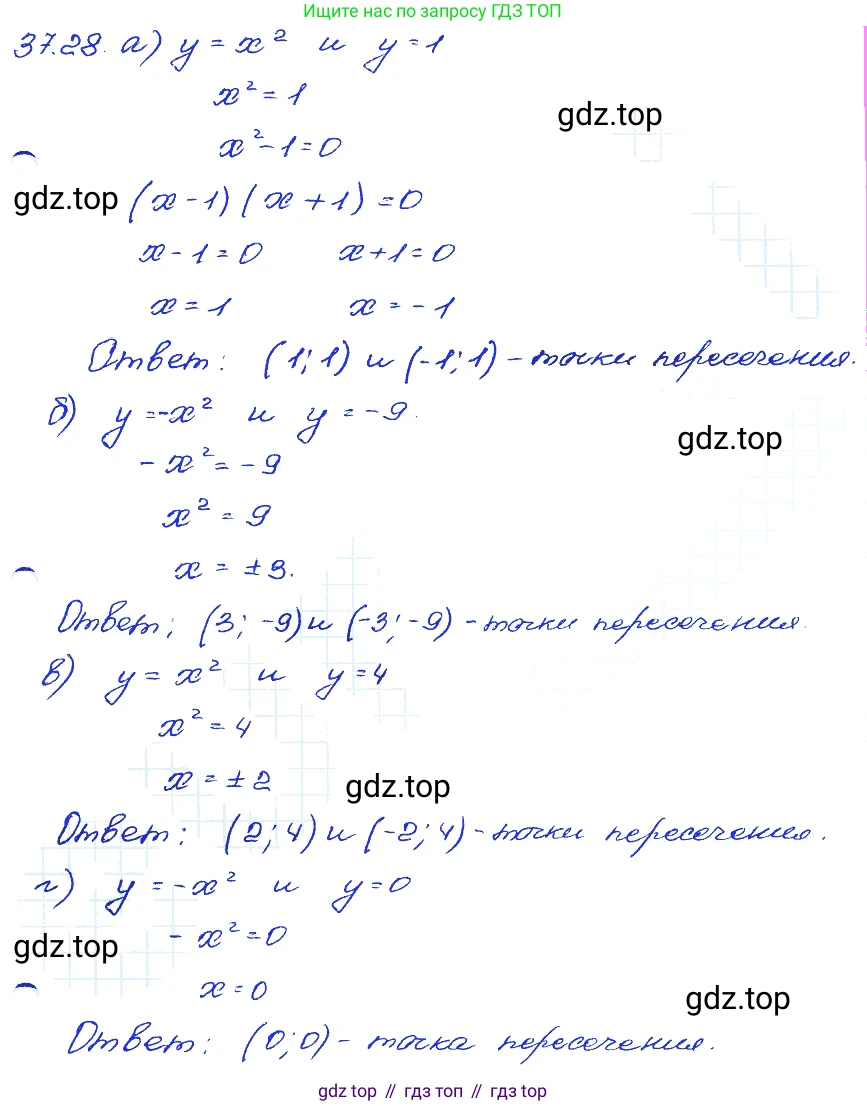 Ищите нас по запросу ГДЗ ТОП
37.28. а) y = x² и y = 1
x² = 1
gdz.top
x² - 1 = 0
gdz.top (x - 1)(x + 1) = 0
x - 1 = 0 x + 1 = 0
x = 1 x = -1
Ответ: (1; 1) и (-1; 1) - точки пересечения.
б) y = -x² и y = -9.
gdz.top
-x² = -9
x² = 9
x = ±3.
Ответ: (3; -9) и (-3; -9) - точки пересечения.
в) y = x² и y = 4
x² = 4
x = ±2
gdz.top
Ответ: (2; 4) и (-2; 4) - точки пересечения.
г) y = -x² и y = 0
gdz.top -x² = 0
x = 0
gdz.top
Ответ: (0; 0) - точка пересечения.
gdz top // гдз топ // gdz top